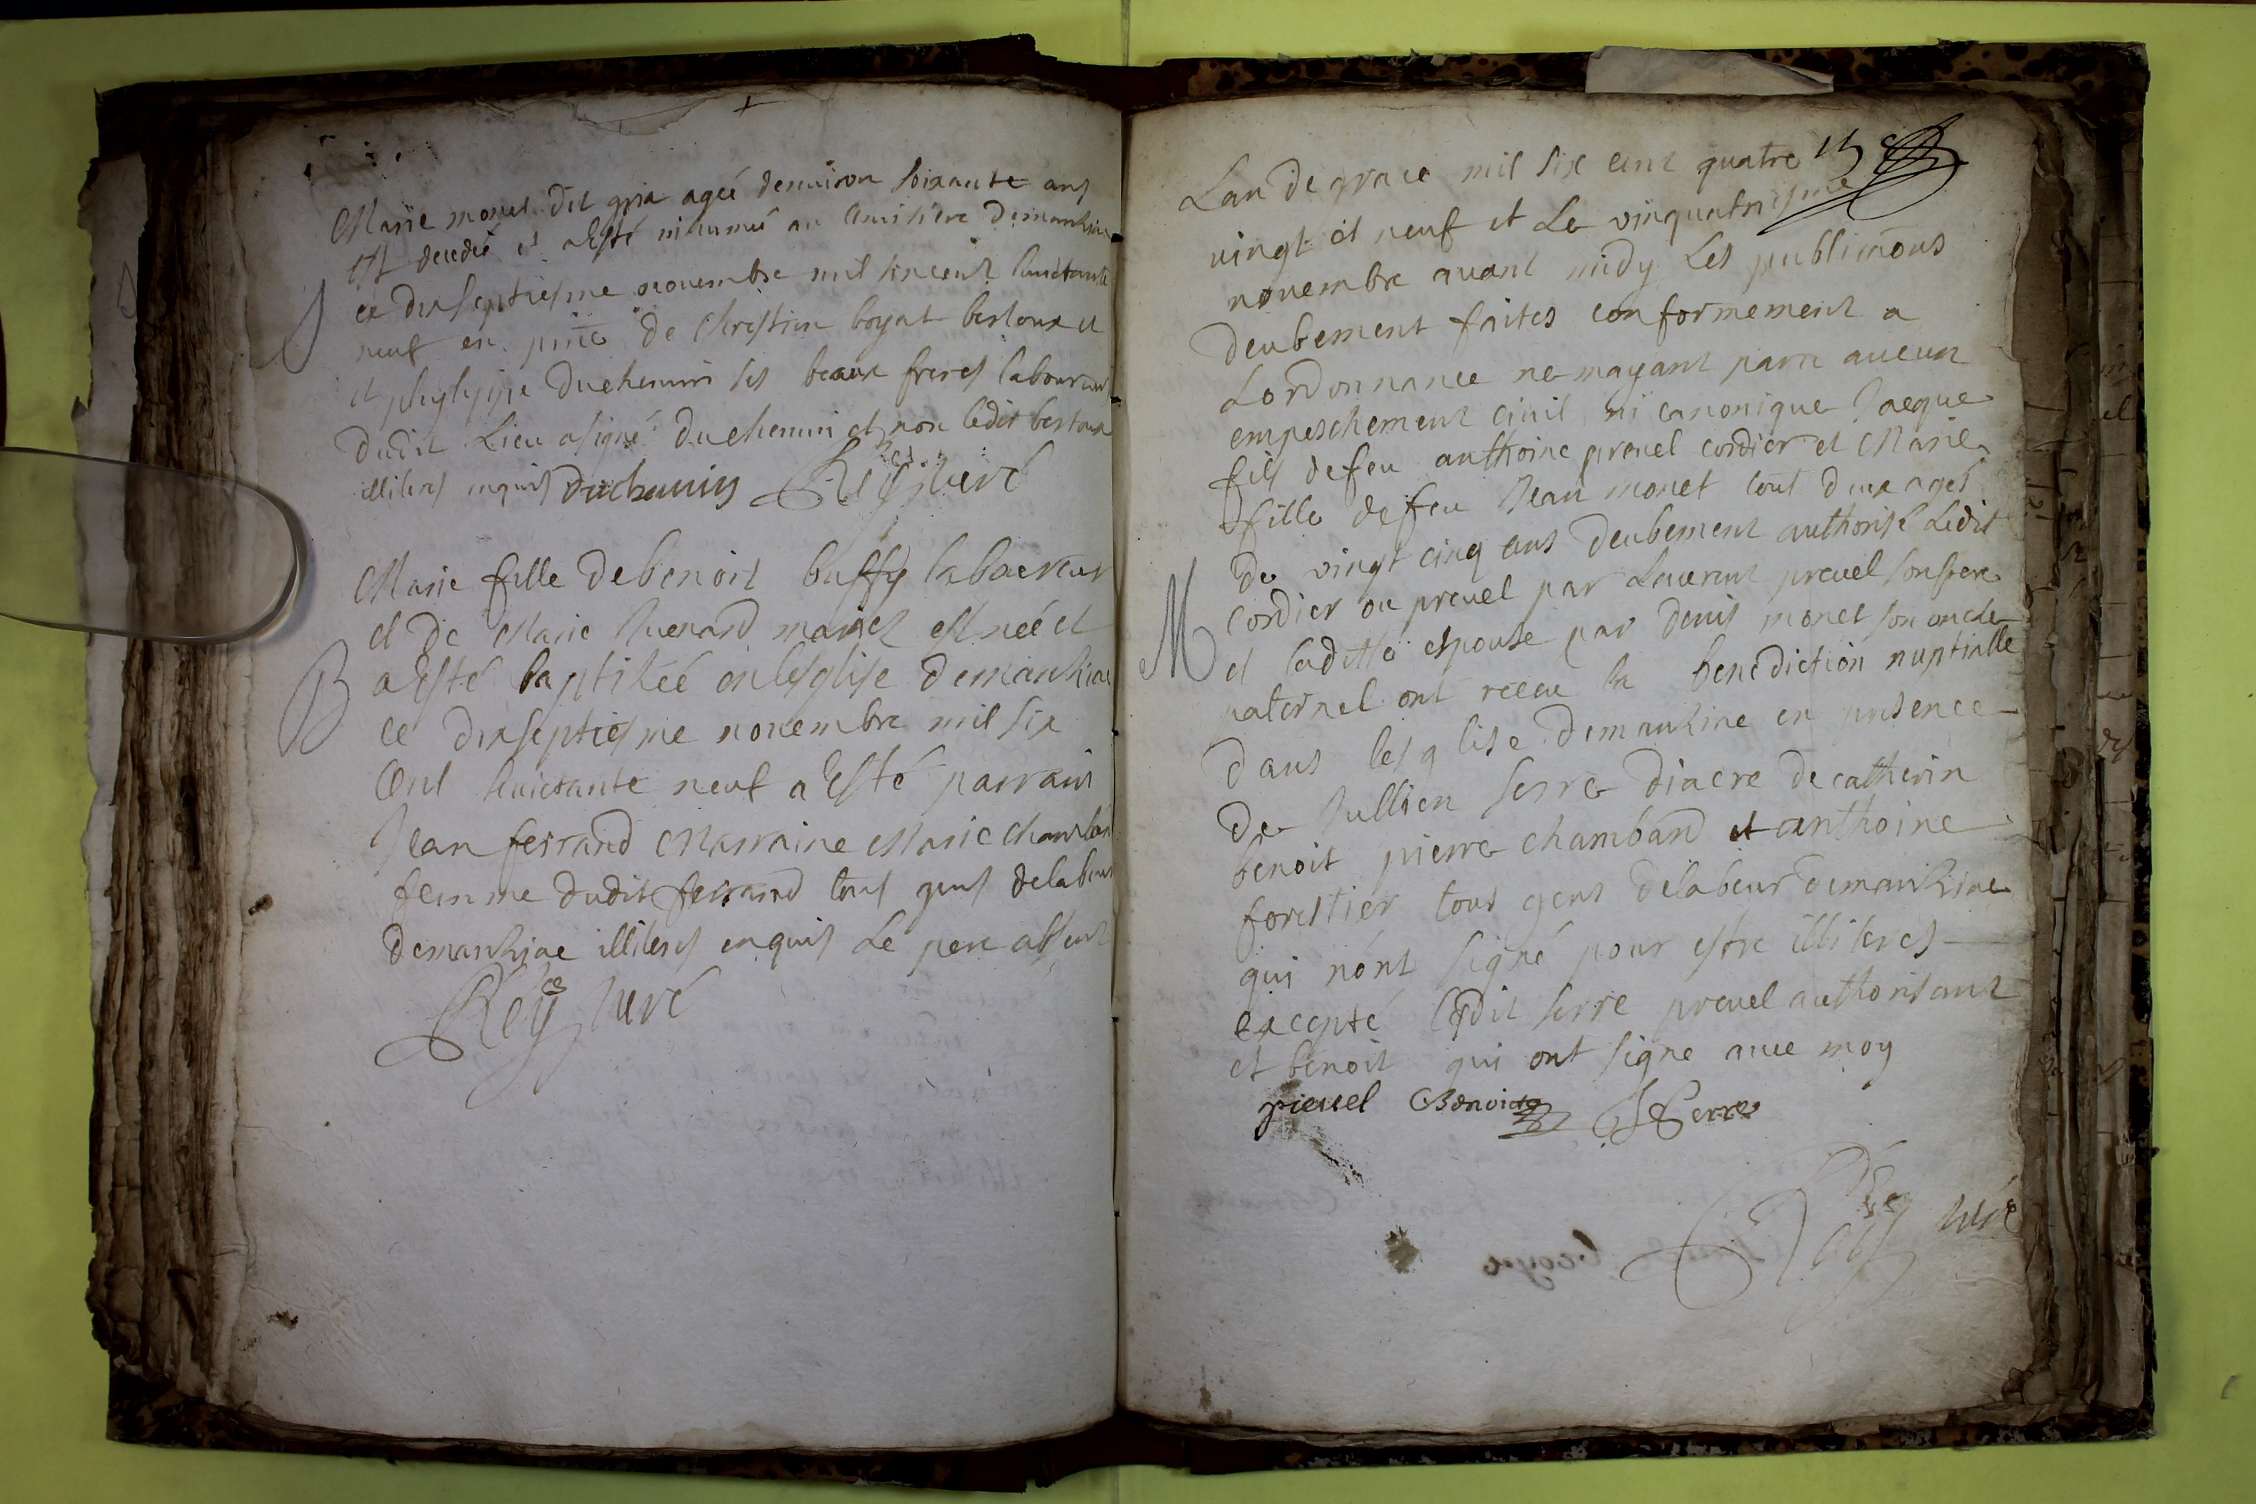 Marie monet dit gria ageé denuiron soixante ans
est decedeé et a esté inhumeé au cimistiere demanziac
ce dixseptiesme nouembre mil six cent huictante
neuf en pnce de christin boyat bertoux et
et phylippe duchemin ses beaux freres laboureurs
dudit Lieu a signé duchemin et non ledit bertoux
illiteres enquis duchemin Rey curé
Marie fille de benoit buffy laboureur
et de Marie mariez est neé et
B a esté baptiseé en lesglise demanziac
ce dixseptiesme nouembre mil six
cent huictante neuf a esté parrain
Jean ferrand Marraine Marie chambard
femme dudit ferrand tous gens delabeur
demanziac illiteres enquis Le pere absent
Rey curé
Lan de grace mil six cent quatre
vingt et neuf et Le vinquatriesme
nouembre auant midy Les publications
deubement faites conformement a
Lordonnance ne mayant paru aucun
empeschement ciuil ni canonique Jacque
fils de feu anthoine preuel cordier et Marie
fille de feu Jean monet tout deux agés
de vingt cinq ans deubement authorisé Ledit
cordier ou preuel par Laurent preuel son frere
M et laditte espouse par denis monet son oncle
paternel ont receu la benediction nuptialle
dans lesglise demanziac en presence
de Jullien serre diacre de catherin
benoit pierre chambard et anthoine
forestier tous gens delabeur demanziac
qui nont signé pour estre illiteres
excepté ledit serre preuel authorisant
et benoit qui ont signe auec moy
preuel Benoict J Serre
Rey curé